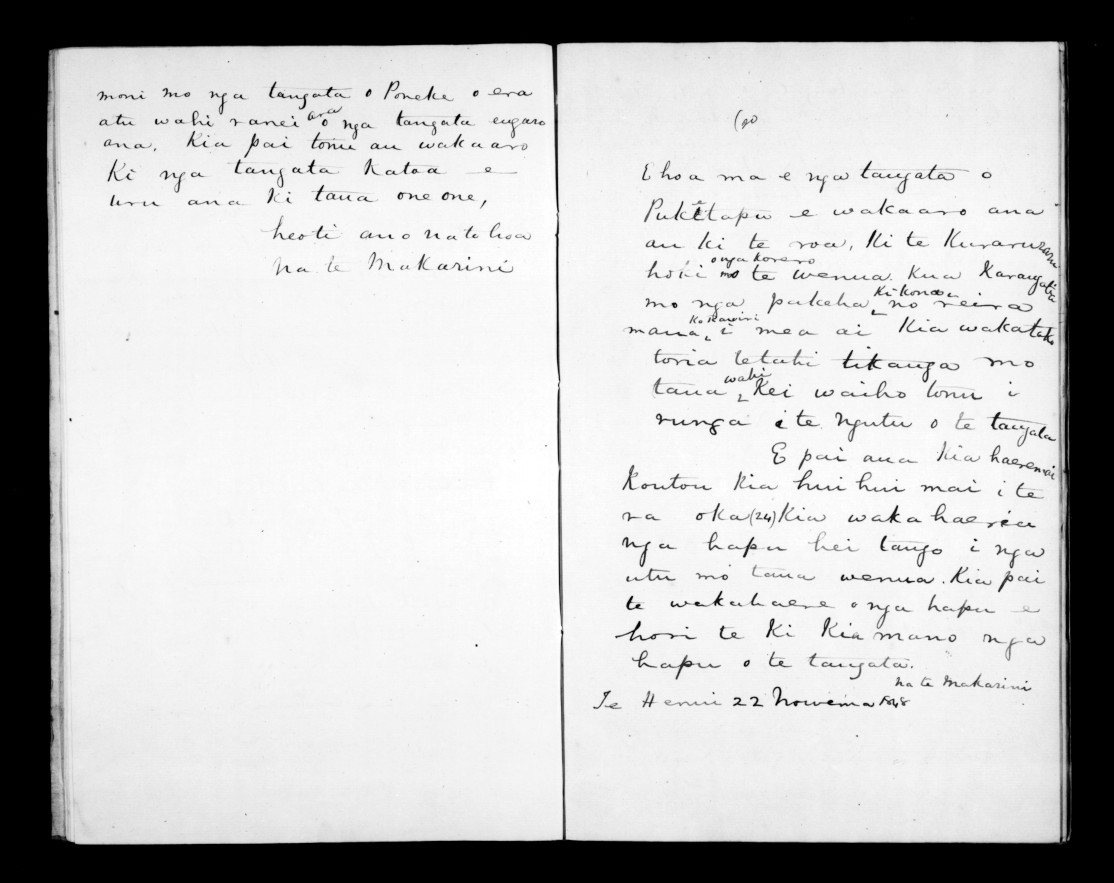 moni mo nga tangata o Poneke o era
atu wahi ranei ara o nga tangata engaro
ana, Kia pai tonu au wakaaro
Ki nga tangata Katoa e
uru ana Ki taua oneone,
heoti ano na to hoa
na te Makarini
E hoa ma e nga tangata o
Puketapu e wakaaro ana
au ki te roa, Ki te Kuraruraru
hoki o nga Korero mo te wenua Kua Karangatia
mo nga pakeha, Ki konei no reira
matou Ko Kawiri i mea ai Kia wakatako
toria tetahi tikanga mo
taua wahi Kei waiho tonu i
runga i te ngutu o te tangata
E pai ana Kia haere mai
Koutou Kia huihui mai i te
ra oka (24) Kia waka haeria
nga hapu hei tango i nga
utu mo taua wenua. Kia pai
te wakahaere o nga hapu e
hori te Ki Kia mano nga
hapu o te tangata.
na te Makarini
Te Henui 22 Nowema 1848